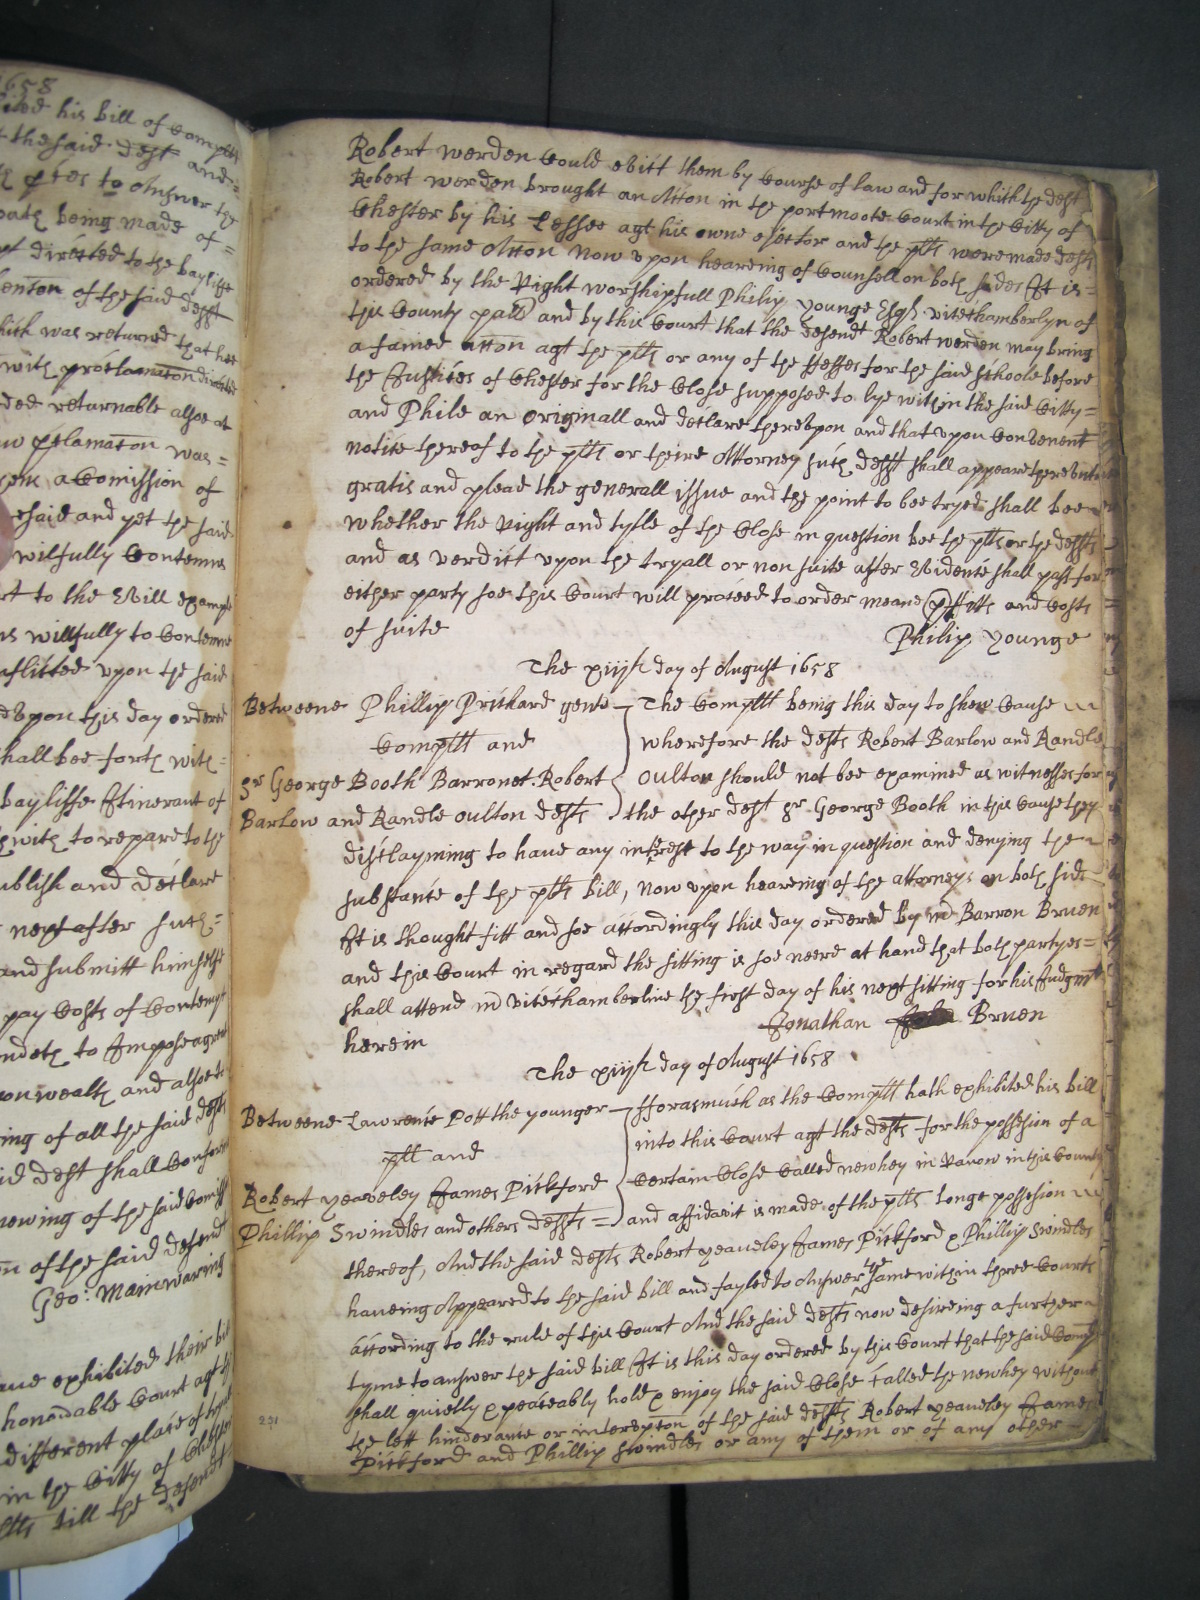 1658
his bill of Complt
the said deft and
ptes to Answer the
oath being made of =
directed to the bayliffe
of the said defft
was returned that hee
with proclamacon directed
returnable alsoe at
pclamacon was =
a Comission of
said and yet the said
wilfully Contemne
to the Evill example
willfully to Contemne
inflicted vpon the said
vpon this day ordered
shall bee forth with =
bayliffe Itinerant of
with to repare to the
publish and declare
next after such =
and submitt himselfe
pay Costs of Contempt
to Impose a great
wealth and alsoe
ing of all the said defts
deft shall Conforme
of the said
of the said defend
Geo: Mainwaring
exhibited their bill
honorable Court agt
different place of
in the Citty of Chester
till the defendt
Robert werden Could evict them by Course of law and for which the deft
Robert werden brought an Accon in the portmoote Court in the Citty of
Chester by his Lessee agt his owne ejector and the plts were made defts
to the same Accon Now vpon heareing of Counsell on both sides It is =
ordered by the Right worshipfull Philip younge Esqr vicechamberlyn of
this County pall and by this Court that the defendt Robert werden may bring
a famed accon agt the plts or any of the ffeffees for the said schoole before
the Justices of Chester for the Close supposed to lye within the said Citty =
and Phile an originall and declare therevpon and that vpon Convenent
notice thereof to the plts or theire Attorney such defft shall appeare therevnto
gratis and plead the generall issue and the point to bee tryed shall bee
whether the right and tytle of the Close in question bee the plts or the deffts
and as verdict vpon the tryall or non suite after Evidence shall past for
either party soe this Court will proceed to order meane pffitts and Costs
of suite
Philip younge
The xiijth day of August 1658
Betweene Phillip Prichard gent
Complt and
Sr George Booth Barronet Robert
Barlow and Randle oulton defts
The Complt being this day to shew Cause
wherefore the defts Robert Barlow and Randle
oulton should not bee examined as witnesses for
the other deft Sr George Booth in this Cause they
disclayming to haue any intrest to the way in question and denying the
substance of the plts bill, Now vpon heareing of the attorneys on both sides
It is thought fitt and soe accordingly this day ordered by mr Barron Bruen
and this Court in regard the sitting is soe neere at hand that both partyes =
shall attend mr vicechamberline the first day of his next sitting for his Judgmt
herein
Jonathan Bruen
The xiijth day of August 1658
Betweene Lawrence Pott the younger
plt and
Robert yeaveley James Pickford
Phillip Swindles and others deffts =
fforasmuch as the Complt hath exhibited his bill
into this Court agt the defts for the possession of a
Certain Close Called newhey in Ranow in this County
and affidavit is made of the plts longe possession
thereof, And the said defts Robert yeaueley James Pickford & Phillip Swindles
haueing Appeared to the said bill and fayled to Answer the same within three Courts
according to the rule of this Court And the said defts now desireing a further
tyme to answer the said bill It is this day ordered by this Court that the said Complt
shall quietly & peaceably hold & enjoy the said Close Called the newhey without
the lett hinderance or intervpcon of the said defts Robert yeaueley James
Pickford and Phillip Swindles or any of them or of any other
291